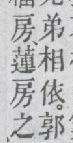 兄弟相依。郭
房蓮房之